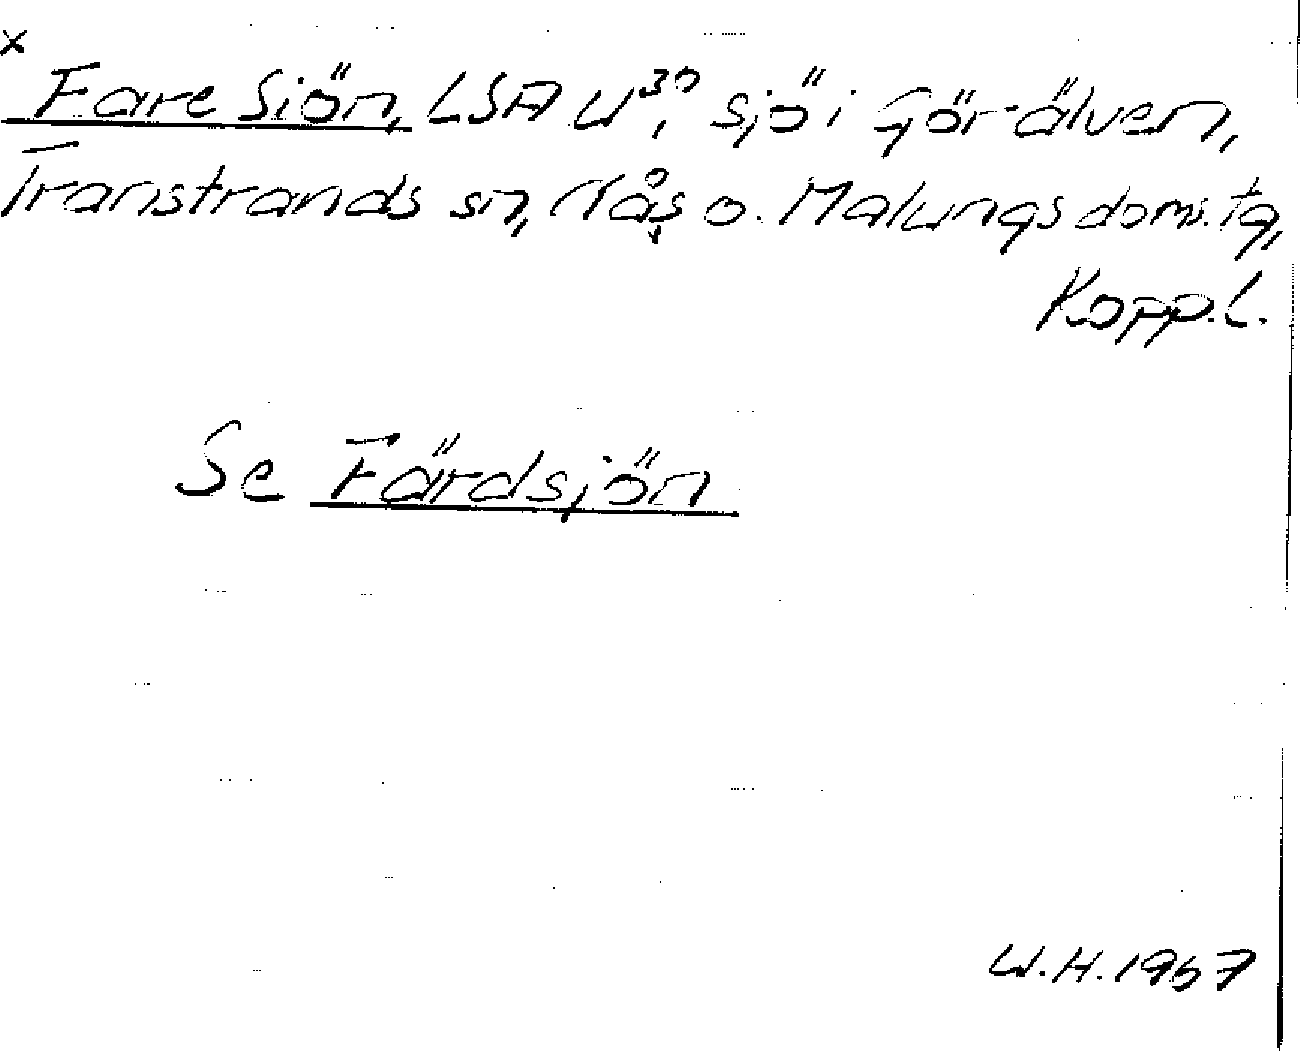 x
Fare Siön, LSA W³⁰, sjö i Gör-älven,
Transtrands sn, Nås o. Malungs doms. tg,
Kopp. l.
Se Färdsjön
W.H. 1967